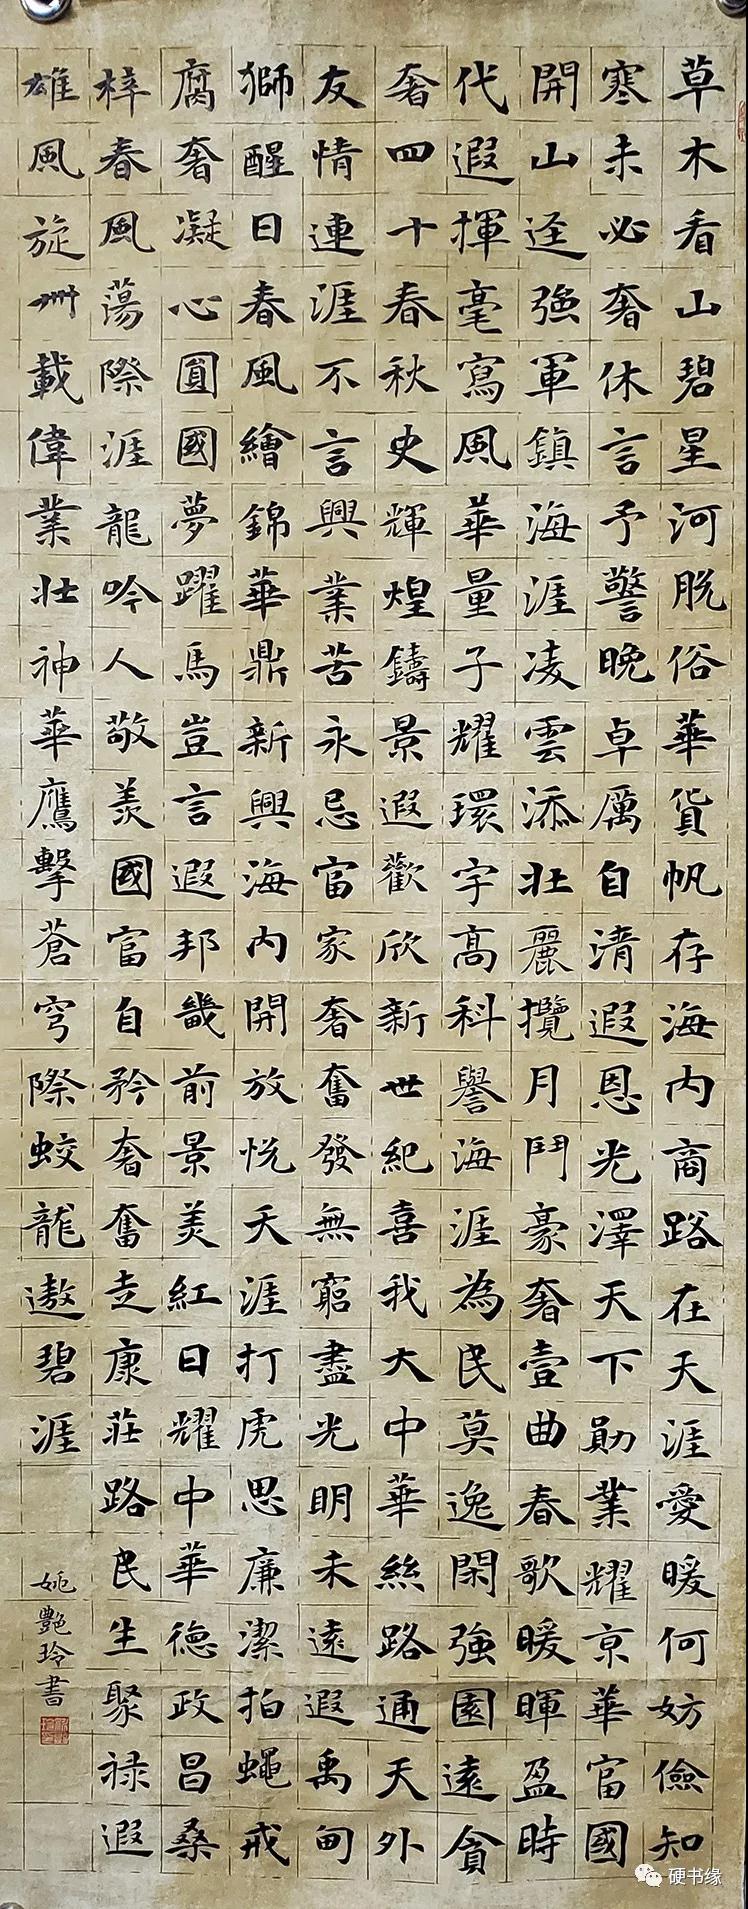 草木看山碧星河脱俗華貨帆存海内商路在天涯愛暖何妨儉知
寒未必奢休言予警晚卓厲自清遐恩光澤天下勛業耀京華富國
開山逕強軍鎮海涯凌雲添壯麗攬月鬥豪奢壹曲春歌暖暉盈時
代遐揮毫寫風華量子耀環宇高科譽海涯為民莫逸閑強園遠貪
奢四十春秋史輝煌鑄景遐歡欣新世紀喜我大中華絲路通天外
友情連涯不言興業苦永忌富家奢奮發無窮盡光明未遠遐禹甸
獅醒日春風繪錦華鼎新興海内開放悦天涯打虎思廉潔拍蠅戒
腐奢凝心圓國夢躍馬豈言遐邦畿前景美紅日耀中華德政昌桑
梓春風蕩際涯龍吟人敬羨國富自矜奢奮走康莊路民生聚禄遐
雄風旋卅載偉業壯神華鷹擊蒼穹際蛟龍遨碧涯
姚艷玲書
硬书缘